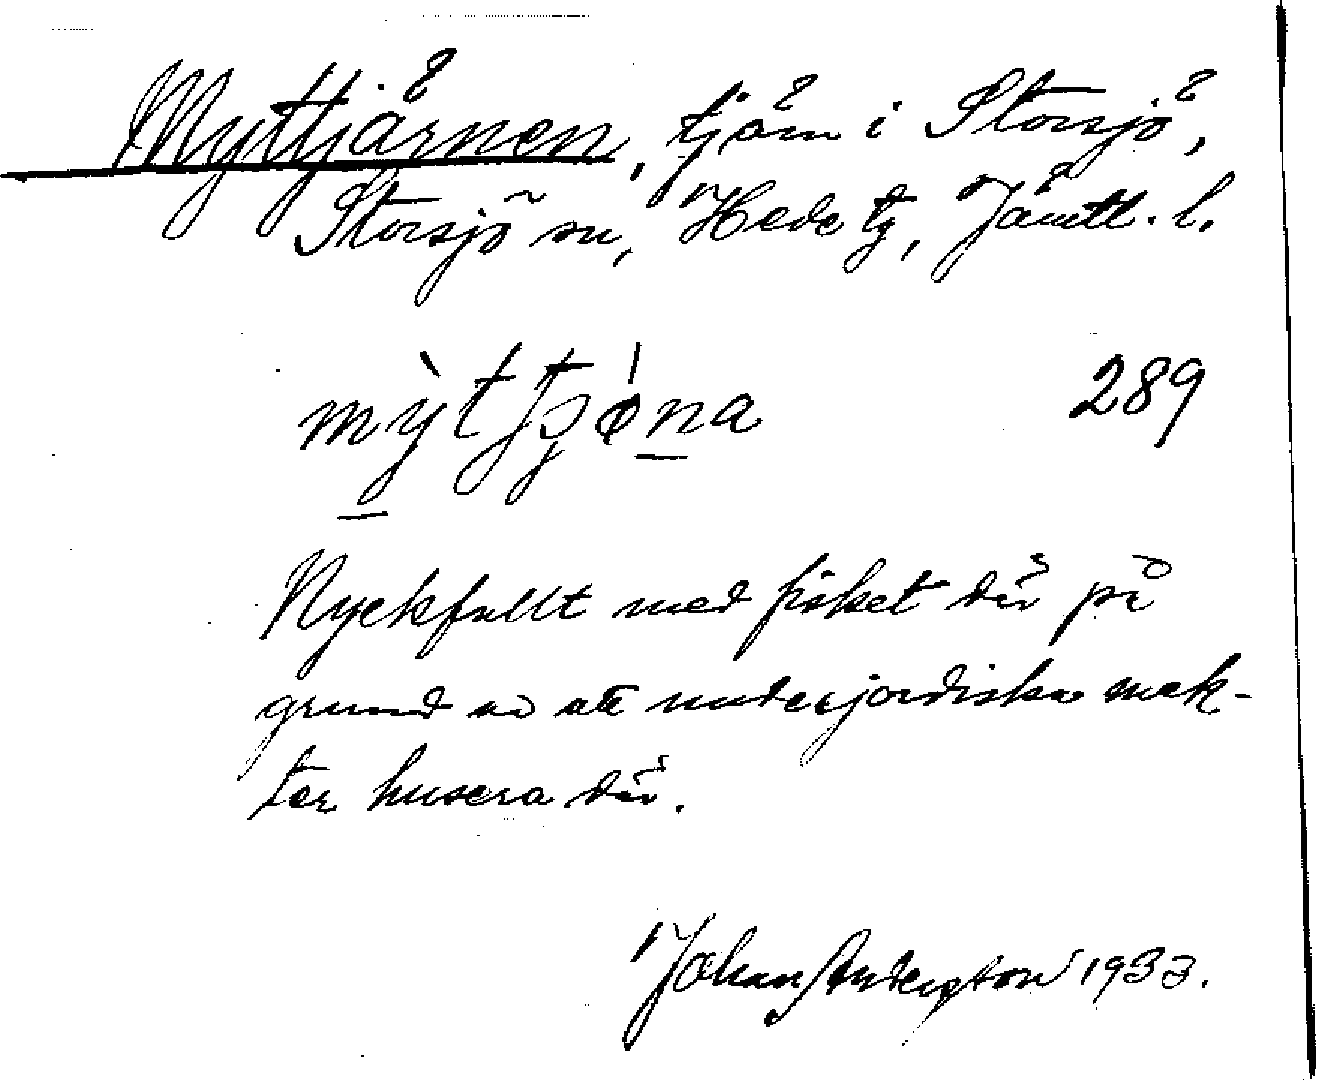 Myttjärnen, tjärn i Storsjö,
Storsjö sn, Hede tg, Jämtl. l.
mỳttjǿna 289
Nyckfullt med fisket där på
grund av att underjordiska mak-
ter husera där.
Johan Anderzson 1933.